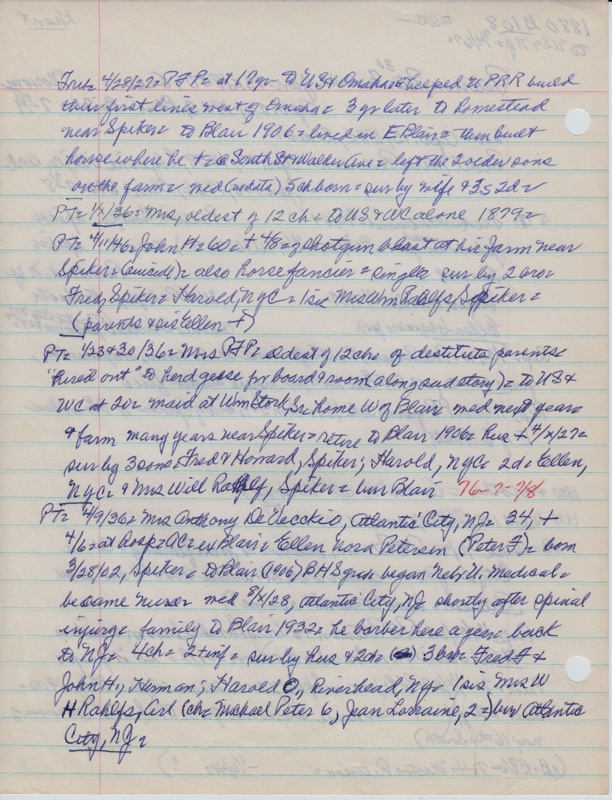 Fred= 4/28/27= P F P= at 17 yr= to US & Omaha & helped U P R R build
their first lines west of Omaha= 3 yr later to homestead
near Spiker= to Blair 1906= lived in E Blair= then built
house where he += @ South St & Walker Ave= left the 2 older sons
on the farm= med (no date) 5 ch born= sur by wife & 3s 2d=
PT= 1/x/36= Mrs, oldest of 12 ch= to US & WC alone 1879=
PT= 4/11/46= John H= 60= + 4/8= of shotgun blast at his farm near
Spiker= (suicid)= also horse fancier= single= sur by 2 bro=
Fred, Spiker= Harold, NYC= 1 sis Mrs Wm Rahlfs, Spiker=
(parents & sis Ellen +)
PT= 1/23 & 30/36= Mrs P F P= oldest of 12 ch= of destitute parents=
"hired out" to herd geese for board & room (along sad story)= to US &
WC at 20= maid at Wm Stork, Sr. home W of Blair med next year=
& farm many years near Spiker= retire to Blair 1906= Hus + 4/x/27=
sur by 3 sons= Fred & Howard, Spiker; Harold, NYC= 2d= Ellen,
NYC= & Mrs Will Rahlfs, Spiker= bur Blair 76-7-28
PT= 4/9/36= Mrs Anthony De Vecchio, Atlantic City, NJ= 34, +
4/6= at hosp= AC= ex Blair= Ellen Nora Petersen (Peter F)= born
3/28/02, Spiker= to Blair (1906) BHS grad= began Nebr U. Medical=
became nurse= med 8/x/28, Atlantic City, NJ shortly after spinal
injury= family to Blair 1932= he barber here a year= back
to NJ= 4 ch= 2 + inf= sur by hus & 2 ch= 3 bro= Fred F &
John H., Herman; Harold O, Riverhead, NY= 1 sis Mrs W
H Rahlfs, Arl (ch= Michael Peter 6, Jean Lorraine, 2=) bur Atlantic
City, NJ=